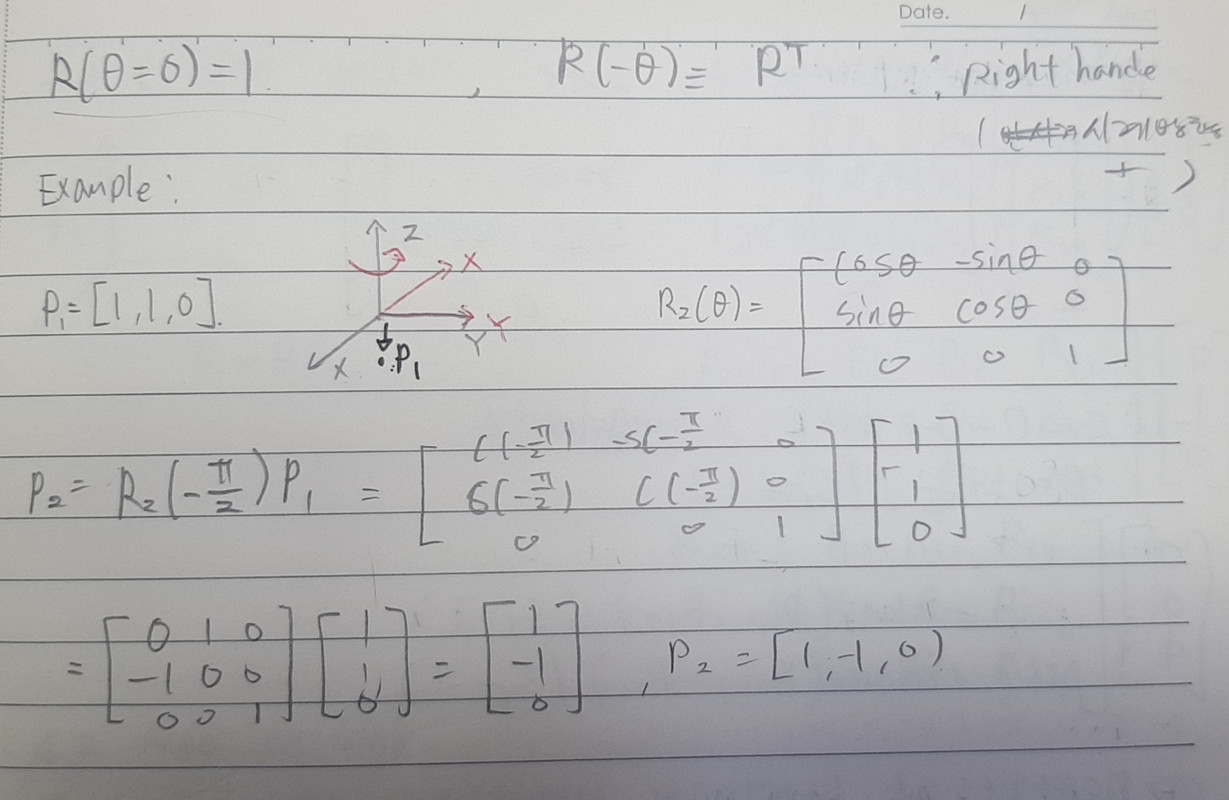 Date. /
R(θ=0)=1 , R(-θ)= Rᵀ ∴ Right hande
( 시계방향
+ )
Example:
Z
X
P₁=[1,1,0]. R₂(θ)= [ cosθ -sinθ 0
sinθ cosθ 0
0 0 1 ]
Y Y
X
P₁
P₂= R₂(-π/2)P₁ = [ C(-π/2) -S(-π/2 0
S(-π/2) C(-π/2) 0
0 0 1 ] [ 1
1
0 ]
= [ 0 1 0
-1 0 0
0 0 1 ] [ 1
1
0 ] = [ 1
-1
0 ] , P₂ = [1,-1,0)